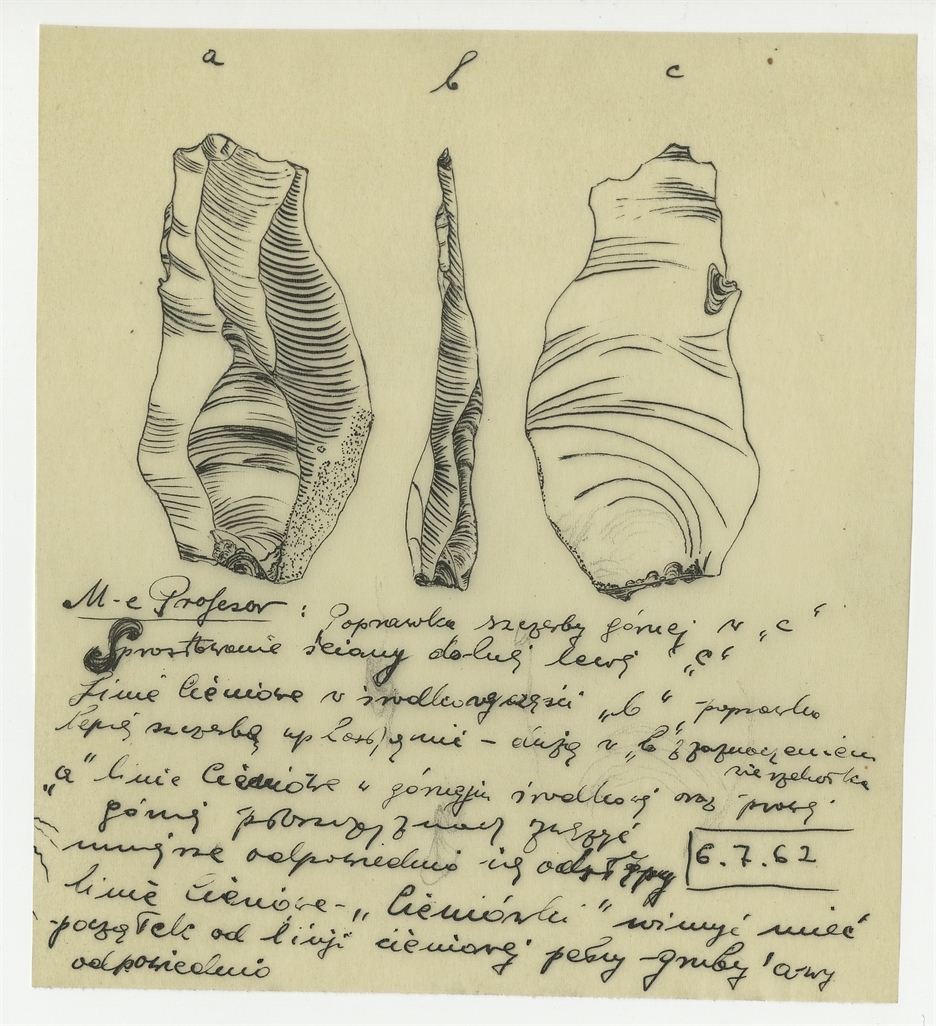 a b c
M-e Profesor : Poprawka szczerby górnej w „c“
Sprostowanie ściany dolnej lewej „c“
Linie Cieniowe w środkowej części „b“, poprawka
szczerbę – dużą w „b“ z zaznaczeniem
wierzchołka
„a“ linie Cieniowe w górnej środkowej oraz prawej
górnej
mniejsze odpowiednio ich odstępy
6.7.62
linie Cieniowe – „Cieniówki“ winny mieć
początek od linji cieniowej pełny gruby
odpowiednio